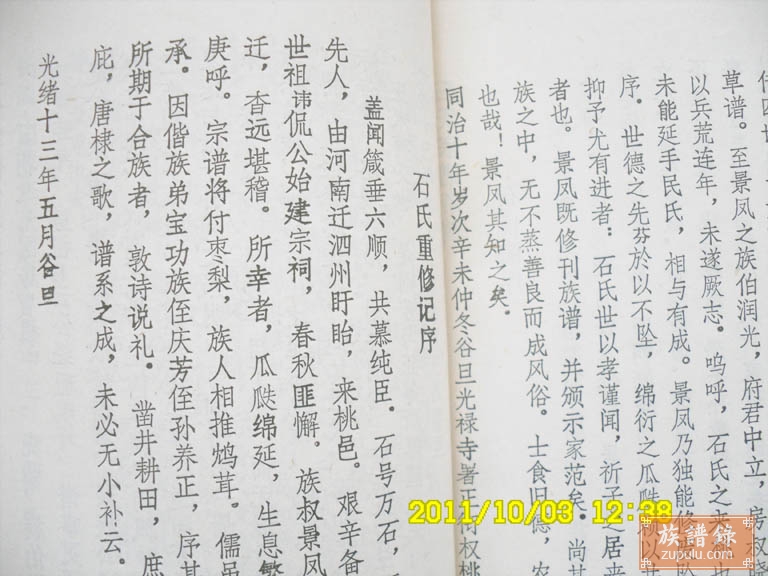 草谱。至景凤之族伯润光，府君中立，房叔晓
以兵荒连年，未遂厥志。呜呼，石氏之来
未能延手民氏，相与有成。景凤乃独能修
序。世德之先芬於以不坠，绵衍之瓜瓞
抑予尤有进者：石氏世以孝谨闻，祈子
者也。景凤既修刊族谱，并颁示家范矣。尚其
族之中，无不蒸善良而成风俗。士食旧德，农
也哉！景凤其知之矣。
同治十年岁次辛未仲冬谷旦光禄寺署正
石氏重修记序
盖闻箴垂六顺，共慕纯臣。石号万石，
先人，由河南迁泗州盱眙，来桃邑。艰辛备
世祖讳侃公始建宗祠，春秋匪懈。族叔景凤
迁，杳远堪稽。所幸者，瓜瓞绵延，生息繁
庚呼。宗谱将付枣梨，族人相推鸩茸。儒
承。因偕族弟宝功族侄庆芳侄孙养正，序其
所期于合族者，敦诗说礼。凿井耕田，庶
庇，唐棣之歌，谱系之成，未必无小补云。
光绪十三年五月谷旦
2011/10/03 12:38
族譜錄
zupulu.com